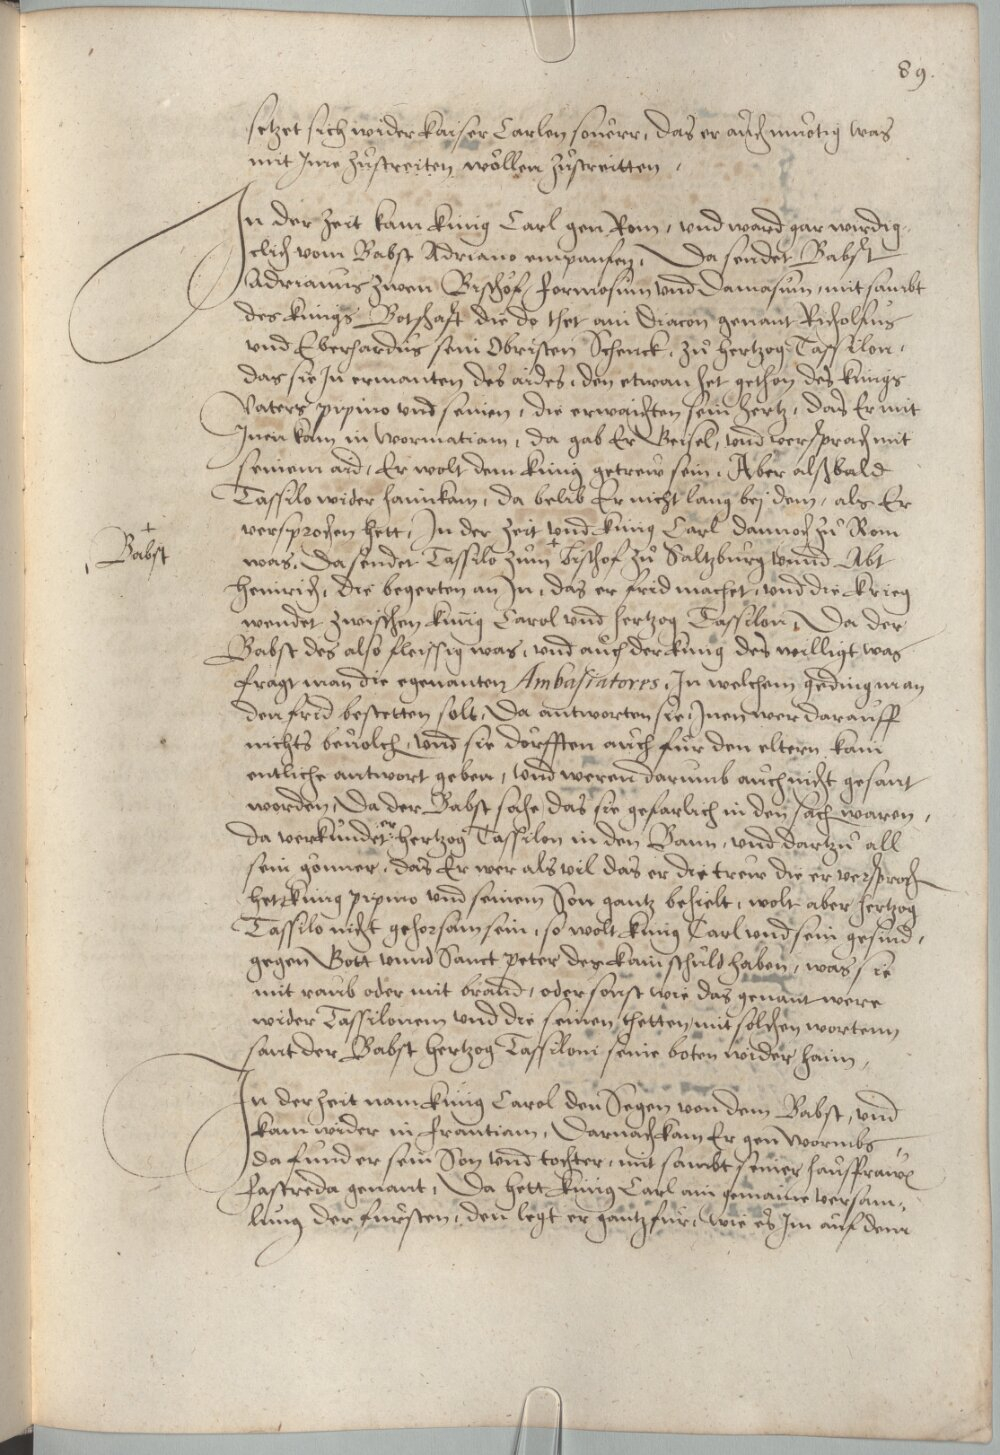 89.
setzet sich wider kaiser Carlen souerr, das er auch muotig was
mit Ime zustreiten wöllen zustreitten.
In der Zeit kam künig Carl gen Rom, und ward gar wirdig-
clich vom Babst Adriano empanfen, Da sendet Babst
Adrianus zwen Bischof formosum und Damasum, mit sambt
des künigs Botschafft die do thet ain Diacon genant Richolfus
und Eberhardus sein Obristen Schenck, zu hertzog Tassilon,
das sie In ermanten des aides, den etwan het gethon des künigs
Vaters pipino und seinen, die erwaichten sein hertz, das Er mit
Inen kam in wormatiam, da gab Er Geisel, und versprach mit
seinem aid, Er wolt dem künig getrew sein, Aber alßbald
Tassilo wider haimkam, da belib Er nicht lang bej dem, als Er
versprochen hett, In der Zeit und künig Carl dannoch zu Rom
was, Da sendet Tassilo zum + Bischof zu Saltzburg unnd Abt
+ Babst
heinrich, die begerten an In, das er frid machet, und die krieg
wendet zwischen künig Carol und hertzog Tassilon, Da der
Babst des also fleissig was, und auch der künig des willigt was
fragt man die egenanten Ambasiatores, In welchem geding man
den frid bestetten solt, Da antworten sie, Inen wer darauff
nichts beuolch, und sie dörfften auch für den eltern kain
entliche antwort geben, und weren darumb auch nicht gesant
worden, Da der Babst sahe das sie gefarlich in den sach waren,
da verkündet er hertzog Tassilon in den Bann, und dartzu all
sein gönner, das Er wer als vil das er die trew die er versproch
hett künig pipino und seinem Son gantz behielt, wolt aber hertzog
Tassilo nicht gehorsam sein, so wolt künig Carl und sein gesind,
gegen Gott unnd Sanct peter des kain schuld haben, was sie
mit raub oder mit brand, oder sonst wie das genant were
wider Tassilonem und die seinen thetten, mit solchen wortenn
sant der Babst hertzog Tassiloni seine boten wider haim,
In der Zeit nam künig Carol den Segen von dem Babst, und
kam wider in frantiam, Darnach kam Er gen wormbs
da fund er sein Son und tochter, mit sambt seiner hausfrawen
fastreda genant, Da hett künig Carl ain gemaine versam-
lung der fursten, den legt er gantz für, wie es Im auf dem